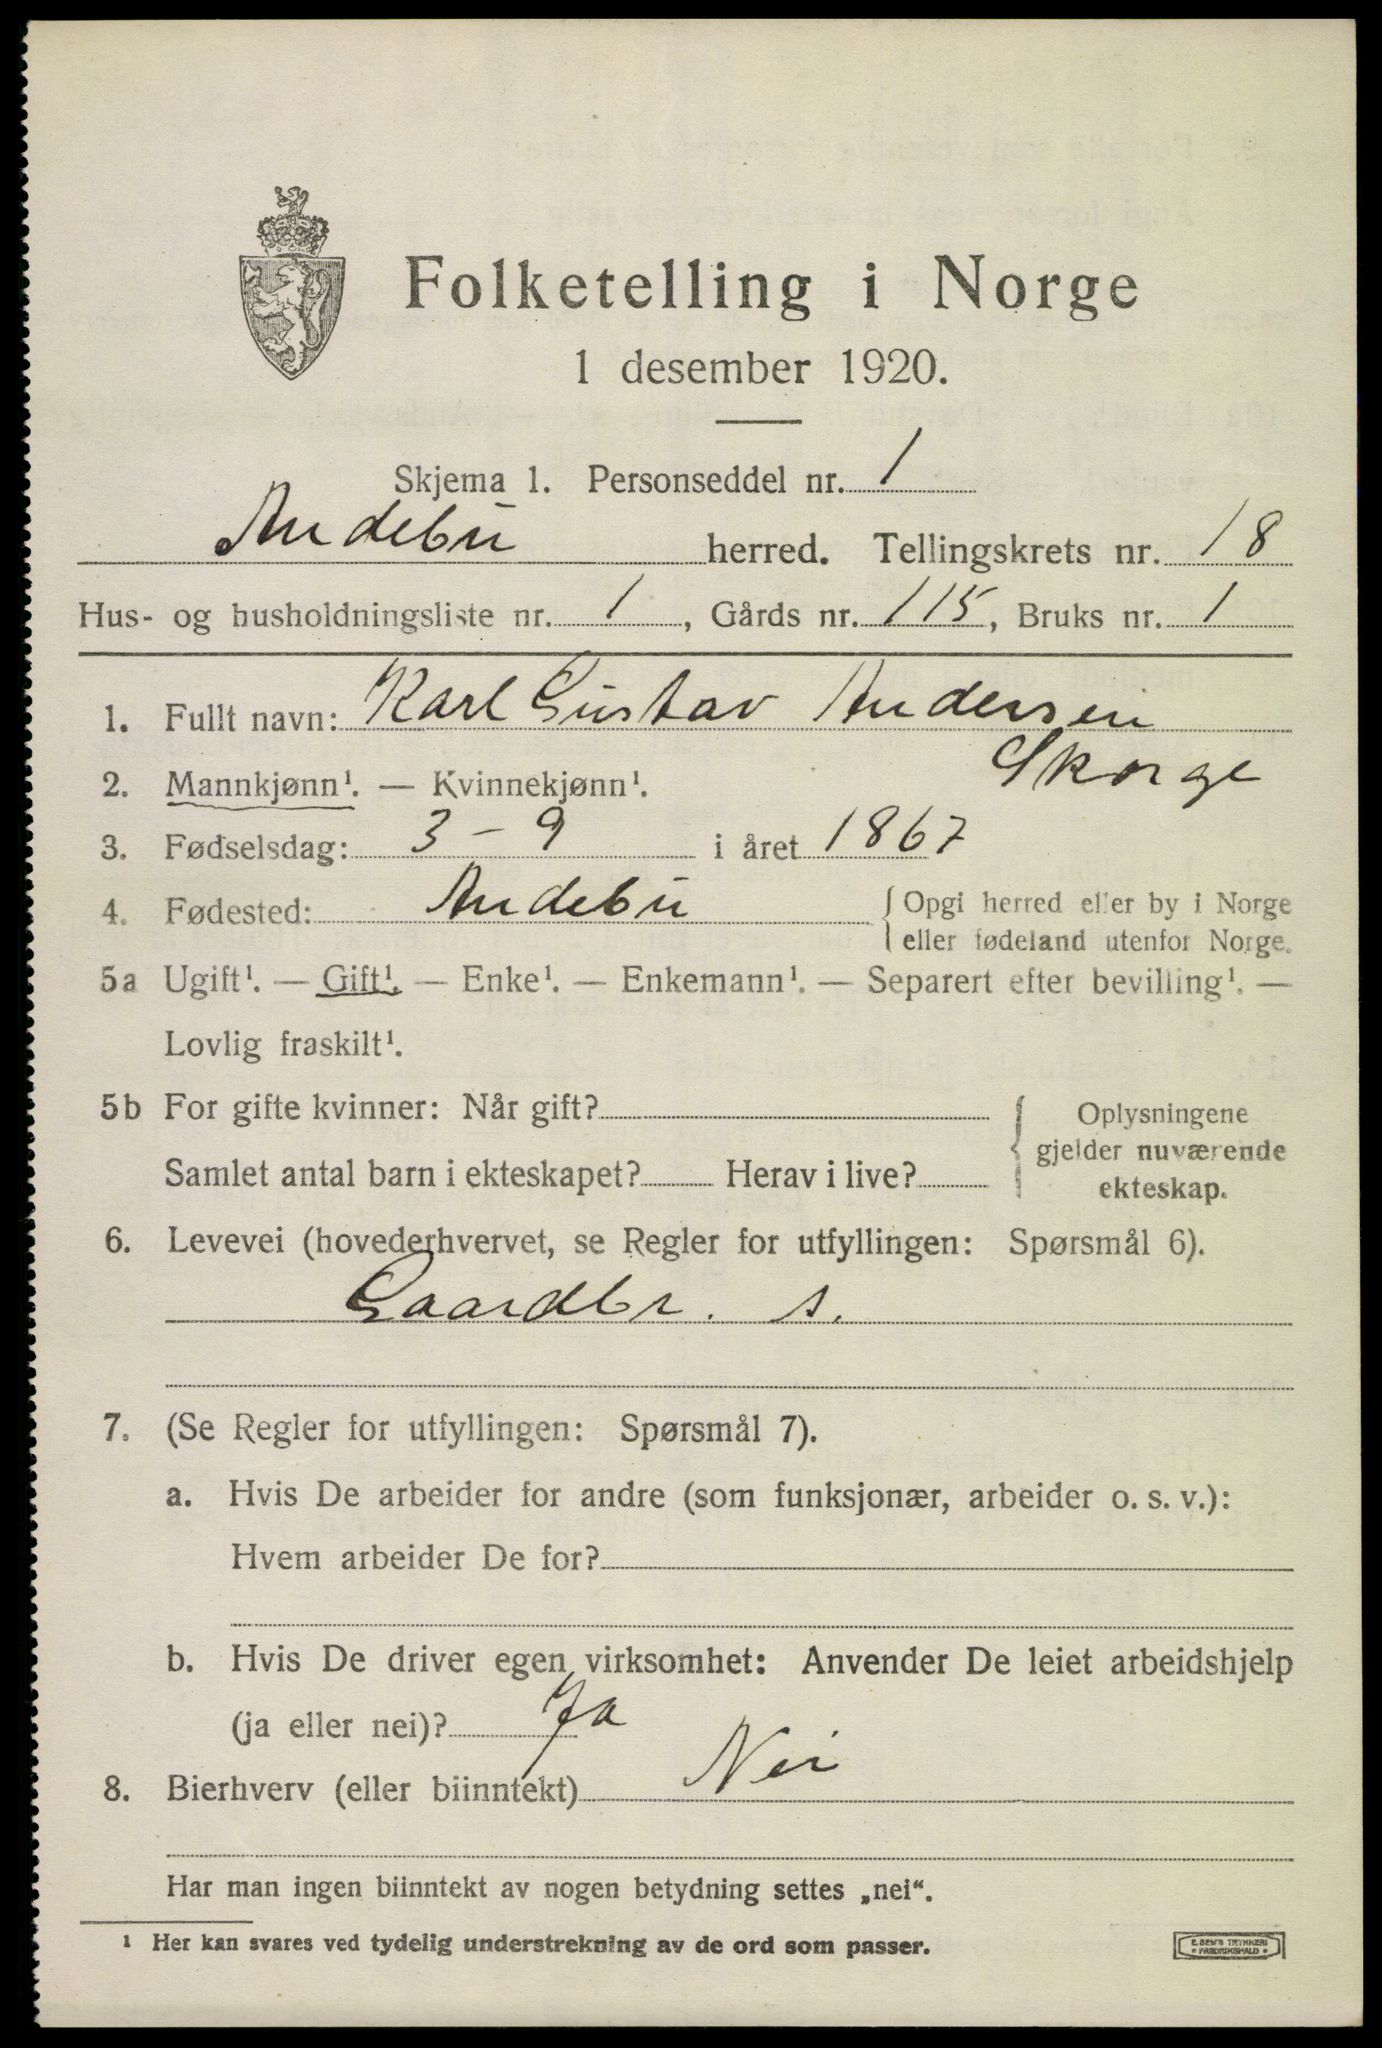 Folketelling i Norge
1 desember 1920.
Skjema 1. Personseddel nr. 1
Andebu herred. Tellingskrets nr. 18
Hus- og husholdningsliste nr. 1, Gårds nr. 115, Bruks nr. 1
1. Fullt navn: Karl Gustav Andersen
Skorge
2. Mannkjønn¹. — Kvinnekjønn¹.
3. Fødselsdag: 3 - 9 i året 1867
4. Fødested: Andebu { Opgi herred eller by i Norge
eller fødeland utenfor Norge.
5a Ugift¹. — Gift¹. — Enke¹. — Enkemann¹. — Separert efter bevilling¹. —
Lovlig fraskilt¹.
5b For gifte kvinner: Når gift? { Oplysningene
gjelder nuværende
Samlet antal barn i ekteskapet? Herav i live? ekteskap.
6. Levevei (hovederhvervet, se Regler for utfyllingen: Spørsmål 6).
Gaardbr. s.
7. (Se Regler for utfyllingen: Spørsmål 7).
a. Hvis De arbeider for andre (som funksjonær, arbeider o. s. v.):
Hvem arbeider De for?
b. Hvis De driver egen virksomhet: Anvender De leiet arbeidshjelp
(ja eller nei)? Ja
8. Bierhverv (eller biinntekt) Nei
Har man ingen biinntekt av nogen betydning settes „nei“.
¹ Her kan svares ved tydelig understrekning av de ord som passer.
E. SEM'S TRYKKERI
• FREDRIKSHALD •